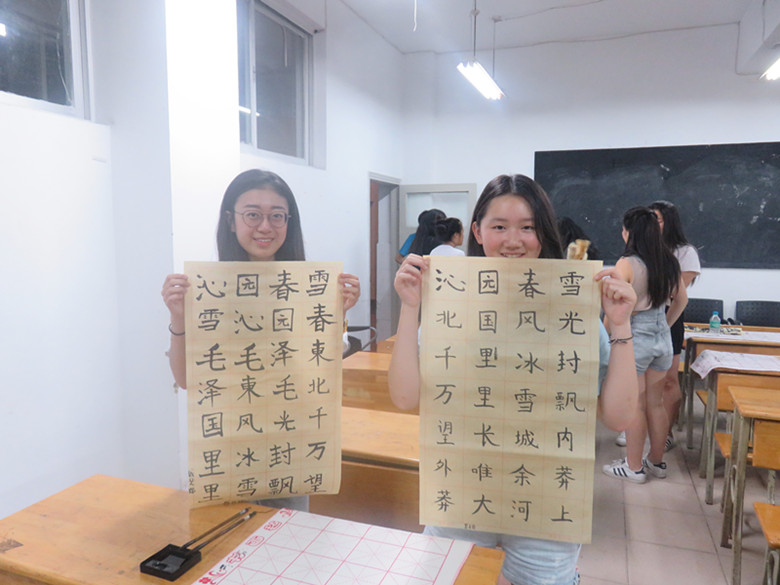 沁园春雪
雪沁园春
毛毛泽東
泽東毛北
国风光千
里冰封万
里雪飘望
沁园春雪
北国风光
千里冰封
万里雪飘
望长城内
外唯余莽
莽大河上